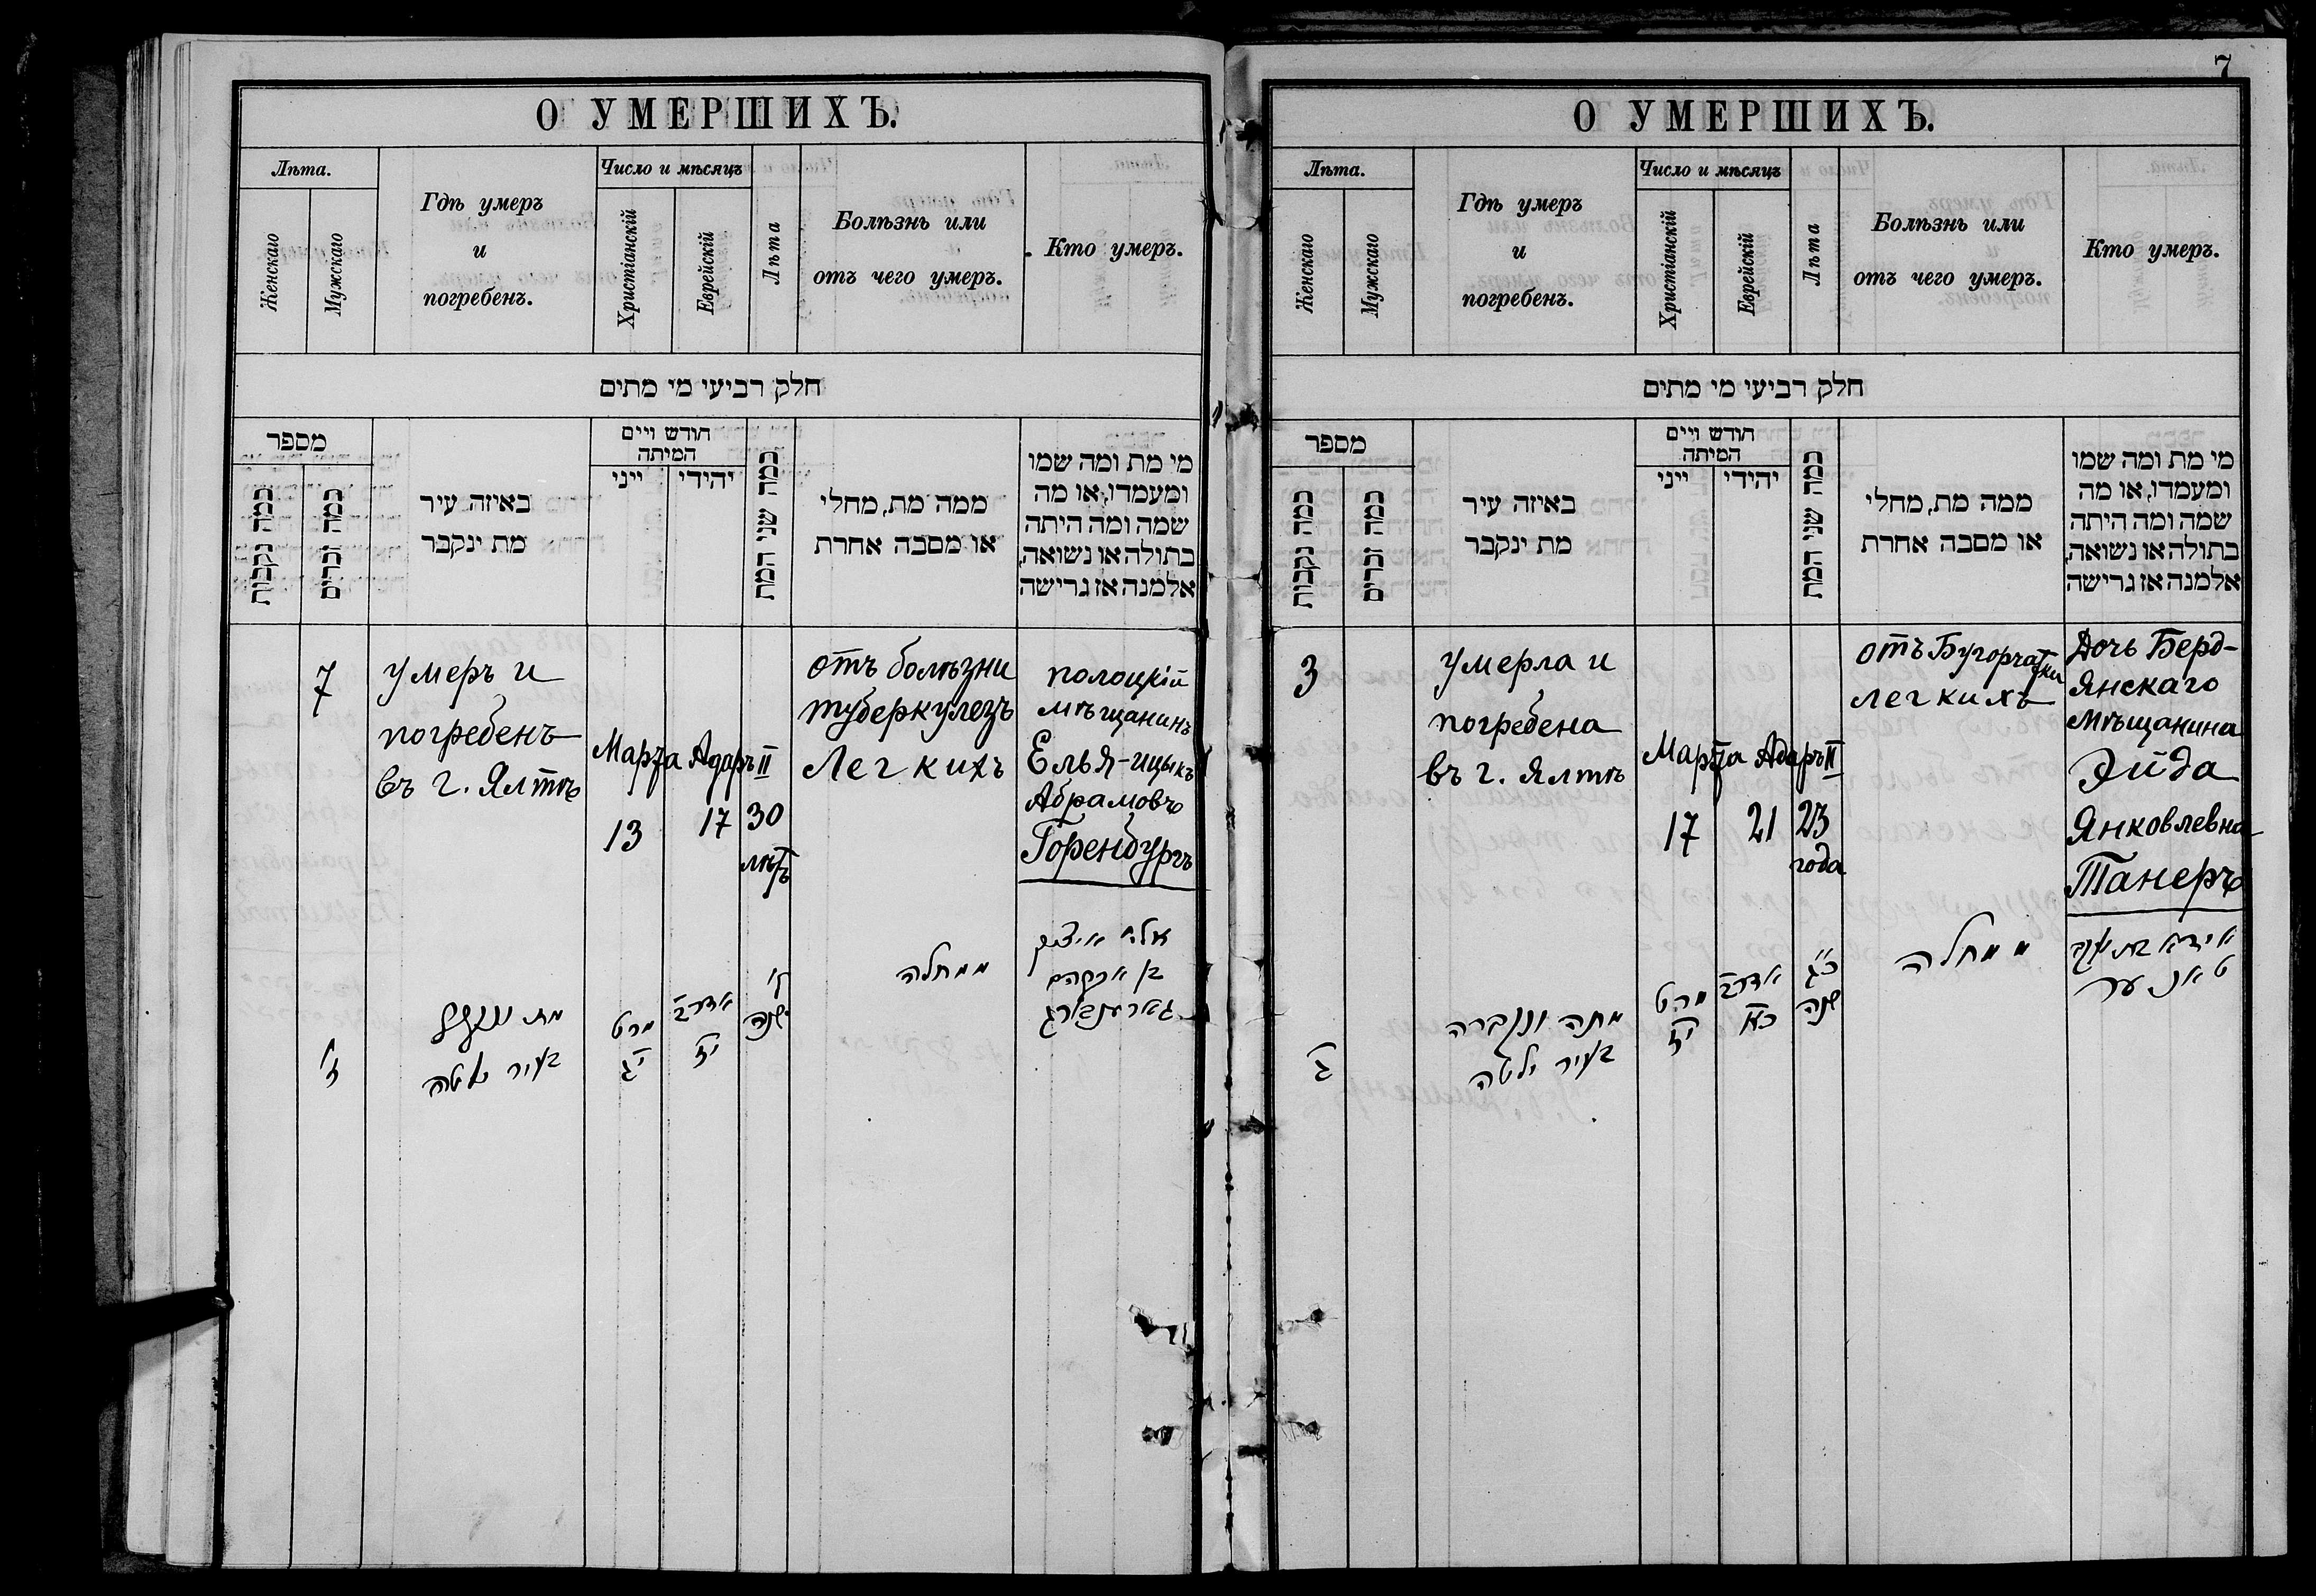 О УМЕРШИХЪ.
Лѣта.
Женскаго
Мужскаго
Гдѣ умеръ
и
погребенъ.
Число и мѣсяцъ
Христіанскій
Еврейскій
Лѣта
Болѣзнь или
отъ чего умеръ.
Кто умеръ.
חלק רביעי מי מתים
מספר
כמה נקבות
כמה זכרים
באיזה עיר
מת ינקבר
חודש ויים
המיתה
ייני
יהודי
כמה שני המת
ממה מת, מחלי
או מסבה אחרת
מי מת ומה שמו
ומעמדו, או מה
שמה ומה היתה
בתולה או נשואה,
אלמנה אז גרישה
7
умеръ и
погребенъ
въ г. Ялтѣ
Марта Адаръ II
13
17
30
лѣтъ
отъ болѣзни
туберкулезъ
Легкихъ
полоцкій
мѣщанинъ
Елья-ицыкъ
Абрамовъ
Горенбургъ
ז'
מת ונקבר
בעיר יאלטה
מרט
יג
אדר ב
יז
ל'
שנה
ממחלה
אלי' איציק
בן אברהם
גארענבורג
7
О УМЕРШИХЪ.
Лѣта.
Женскаго
Мужскаго
Гдѣ умеръ
и
погребенъ.
Число и мѣсяцъ
Христіанскій
Еврейскій
Лѣта
Болѣзнь или
отъ чего умеръ.
Кто умеръ.
חלק רביעי מי מתים
מספר
כמה נקבות
כמה זכרים
באיזה עיר
מת ינקבר
חודש ויים
המיתה
ייני
יהידי
כמה שני המת
ממה מת, מחלי
או מסבה אחרת
מי מת ומה שמו
ומעמדו, או מה
שמה ומה היתה
בתולה או נשואה,
אלמנה אז גרישה
3
умерла и
погребена
въ г. Ялтѣ
Марта Адаръ II
17
21
23
года
отъ Бугорчатки
легкихъ
Дочь Берд-
янскаго
мѣщанина
Эйда
Янковлевна
Танеръ
ג'
מתה ונקברה
בעיר ילטה
מרט
יז
אדר ב
כא
כ"ג
שנה
ממחלה
אידא בת יעקב
טאנער